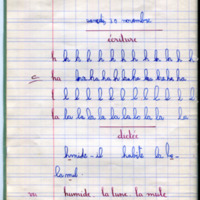 samedi 10 novembre
écriture
h h h h h h h h h h h h
c ha ha ha ha ha ha ha ha ha
l l l l l l l l l l l l l
la la la la la la la la la la
dictée
humide il habite la
m humide la lune la mule